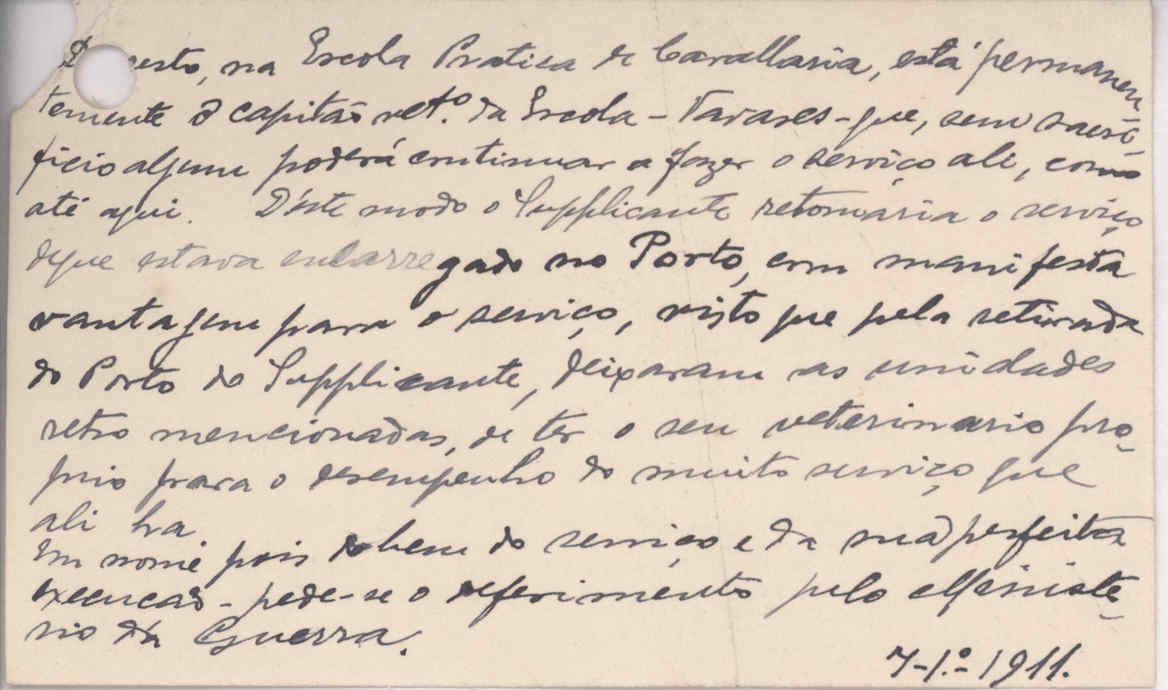 De resto, na Escola Pratica de Cavallaria, está permanen
temente o capitão vet.º da Escola - Tavares - que, sem sacri-
ficio algum poderá continuar a fazer o serviço ali, como
até aqui. D'éste modo o Supplicante retomaria o serviço
de que estava encarregado no Porto, com manifesta
vantagem para o serviço, visto que pela retirada
do Porto do Supplicante, deixaram as unidades
retro mencionadas, de ter o seu veterinario pro-
prio para o desempenho do muito serviço que
ali ha.
Em nome pois do bem do serviço e da sua perfeita
execucão - pede-se o deferimento pelo Ministe-
rio da Guerra.
7-1.º-1911.